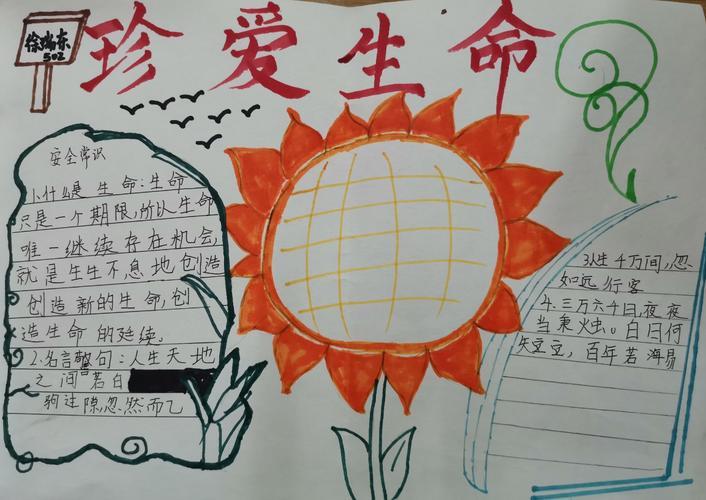 徐瑞东
502
珍爱生命
安全常识
1.什么是生命:生命
只是一个期限,所以生命
唯一继续存在机会,
就是生生不息地创造
创造新的生命,创
造生命的延续。
2.名言警句:人生天地
之间若白
驹过隙,忽然而已
3.人生千万间,忽
如远行客
4.三万六千日,夜夜
当秉烛。白日何
失立立,百年若海易